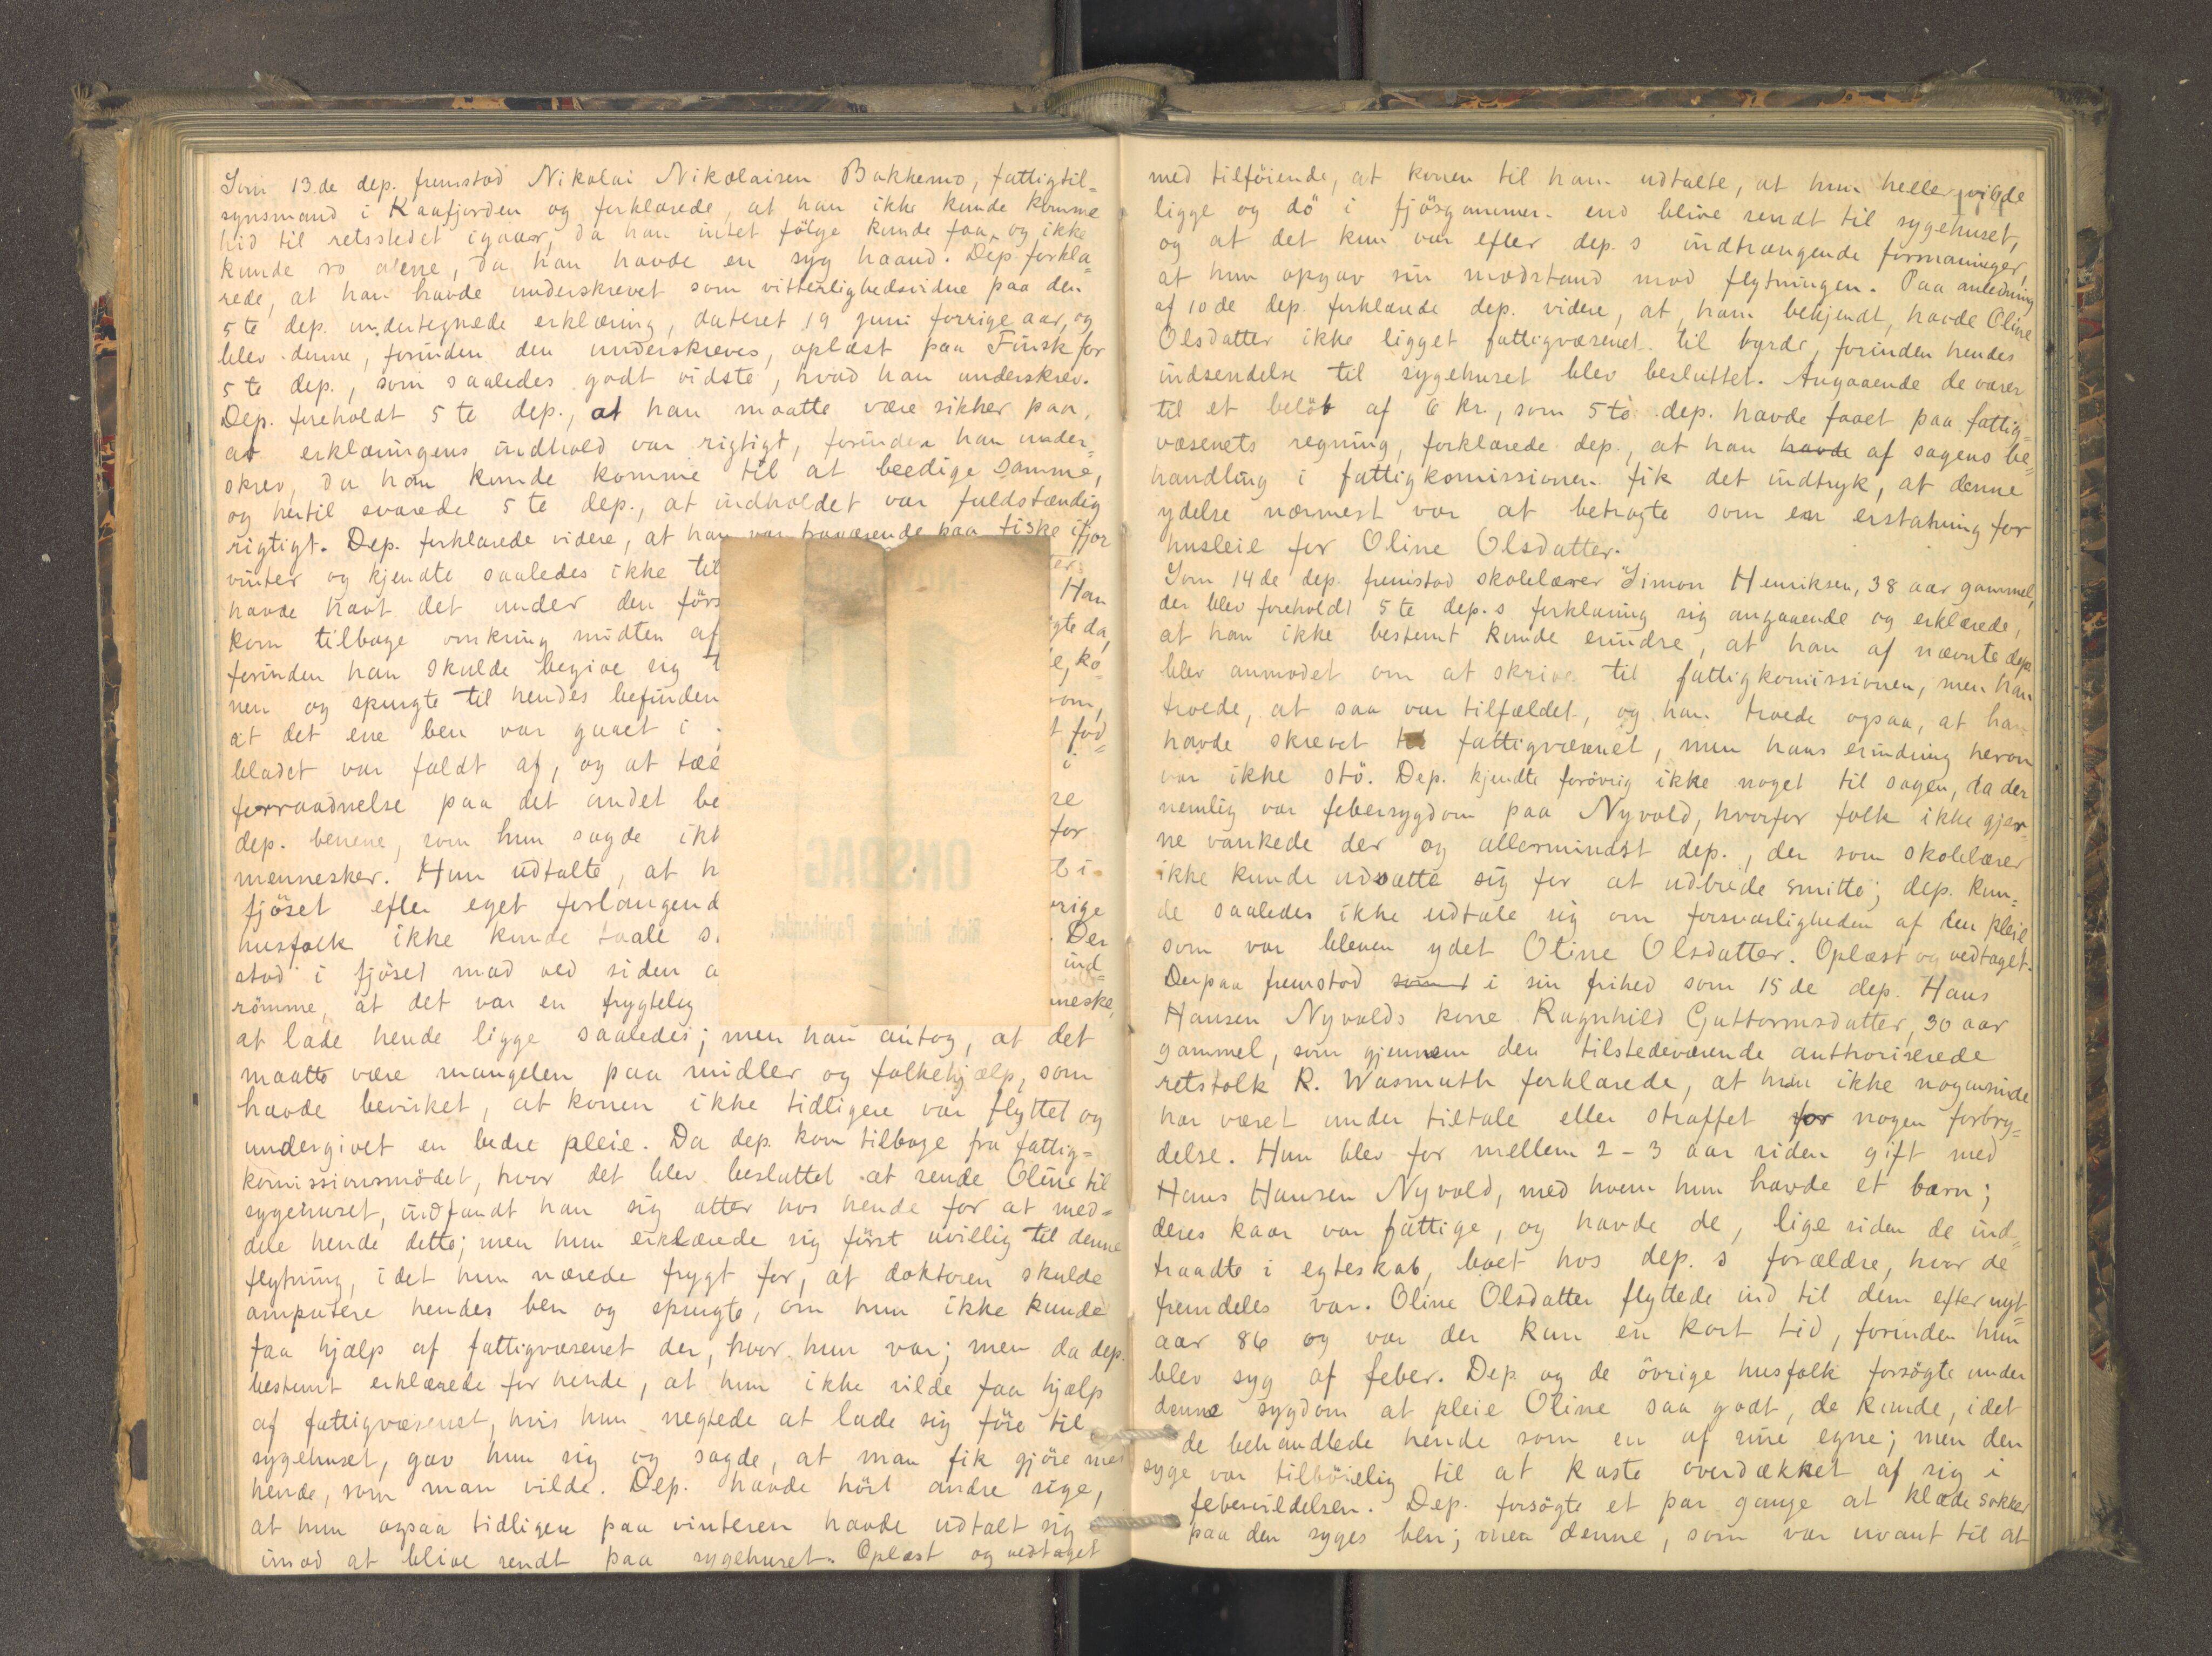 Som 13.de dep. fremstod Nikolai Nikolaisen Bakkemo, fattigtil=
synsmand i Kaafjorden og forklarede, at han ikke kunde komme
hid til retsstedet igaar, da han intet fölge kunde faa, og ikke
kunde ro alene, da han havde en syg haand. Dep. forkla=
rede, at han havde underskrevet som vitterlighedsvidne paa den
5te dep. undertegnede erklæring, dateret 19 juni forrige aar, og
blev denne, forinden den underskreves, oplæst paa Finsk for
5te dep., som saaledes godt vidste, hvad han underskrev.
Dep. foreholdt 5te dep., at han maatte være sikker paa,
at erklæringens indhold var rigtigt, forinden han under=
skrev, da han kunde komme til at beedige samme,
og hertil svarede 5te dep., at indholdet var fuldstændig
rigtigt. Dep. forklarede videre, at han var fraværende paa fiske ifjor
vinter og kjendte saaledes ikke til
havde havt det under den förs er.
kom tilbage omkring midten af Han
forinden han skulde begive sig t gte da,
nen og spurgte til hendes befinden e, ko=
at det ene ben var gaaet i om,
bladet var faldt af, og at tæe t fod=
forraadnelse paa det andet be i
dep. benene, som hun sagde ikk re
mennesker. Hun udtalte, at h for
fjöset efter eget forlangend t i
husfolk ikke kunde taale s. rige
stod i fjöset mad ved siden a . Der
römme, at det var en frygtelig ind=
neske,
at lade hende ligge saaledes; men han antog, at det
maatte være mangelen paa midler og folkehjælp, som
havde bevirket, at konen ikke tidligere var flyttet og
undergivet en bedre pleie. Da dep. kom tilbage fra fattig=
komissionsmödet, hvor det blev besluttet at sende Oline til
sygehuset, indfandt han sig atter hos hende for at med=
dele hende dette; men hun erklærede sig först uvillig til denne
flytning, idet hun nærede frygt for, at doktoren skulde
amputere hendes ben og spurgte, om hun ikke kunde
faa hjælp af fattigvæsenet der, hvor hun var; men da dep.
bestemt erklærede for hende, at hun ikke vilde faa hjælp
af fattigvæsenet, hvis hun negtede at lade sig före til
sygehuset, gav hun sig og sagde, at man fik gjöre med
hende, som man vilde. Dep. havde hört andre sige,
at hun ogsaa tidligere paa vinteren havde udtalt sig
imod at blive sendt paa sygehuset. Oplæst og vedtaget
ONSDAG
med tilföiende, at konen til ham udtalte, at hun heller vilde
ligge og dö i fjösgammen end blive sendt til sygehuset,
og at det kun var efter dep.s indtrængende formaninger,
at hun opgav sin modstand mod flytningen. Paa anledning
af 10de dep. forklarede dep. videre, at, ham bekjendt, havde Oline
Olsdatter ikke ligget fattigvæsenet til byrde, forinden hendes
indsendelse til sygehuset blev besluttet. Angaaende de varer
til et belöb af 6 kr., som 5te dep. havde faaet paa fattig=
væsenets regning, forklarede dep., at han havde af sagens be=
handling i fattigkomissionen fik det indtryk, at denne
ydelse nærmest var at betragte som en erstatning for
husleie for Oline Olsdatter.
Som 14de dep. fremstod skolelærer Simon Henriksen, 38 aar gammel,
der blev foreholdt 5te dep.s forklaring sig angaaende og erklærede,
at han ikke bestemt kunde erindre, at han af nævnte dep.
blev anmodet om at skrive til fattigkomissionen, men han
troede, at saa var tilfældet, og han troede ogsaa, at han
havde skrevet til fattigvæsenet, men hans erindring herom
var ikke stö. Dep. kjendte forövrig ikke noget til sagen, da der
nemlig var febersygdom paa Nyvold, hvorfor folk ikke gjer=
ne vankede der og allermindst dep., der som skolelærer
ikke kunde udsætte sig for at udbrede smitte; dep. kun=
de saaledes ikke udtale sig om forsvarligheden af den pleie
som var bleven ydet Oline Olsdatter. Oplæst og vedtaget.
Derpaa fremstod i sin frihed som 15de dep. Hans
Hansen Nyvolds kone Ragnhild Guttormsdatter, 30 aar
gammel, som gjennem den tilstedeværende authoriserede
retstolk R. Wasmuth forklarede, at hun ikke nogensinde
har været under tiltale eller straffet for nogen forbry=
delse. Hun blev for mellem 2-3 aar siden gift med
Hans Hansen Nyvold, med hvem hun havde et barn;
deres kaar var fattige, og havde de, lige siden de ind=
traadte i egteskab, boet hos dep.s forældre, hvor de
fremdeles var. Oline Olsdatter flyttede ind til dem efter nyt=
aar 86 og var der kun en kort tid, forinden hun
blev syg af feber. Dep og de övrige husfolk forsögte under
denne sygdom at pleie Oline saa godt, de kunde, idet
de behandlede hende som en af sine egne; men den
syge var tilböielig til at kaste overdækket af sig i
febervildelsen. Dep. forsögte et par gange at klæde sokker
paa den syges ben; men denne, som var uvant til at